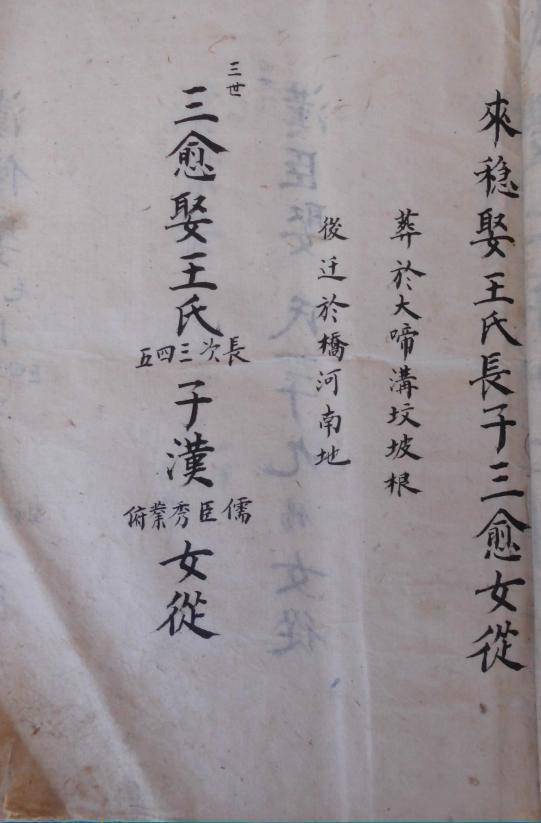 來穏娶王氏長子三愈女從
葬於大啼溝坟坡根
後迁於橋河南地
三世
三愈娶王氏
長次三四五
子漢
儒臣秀業俯
女從